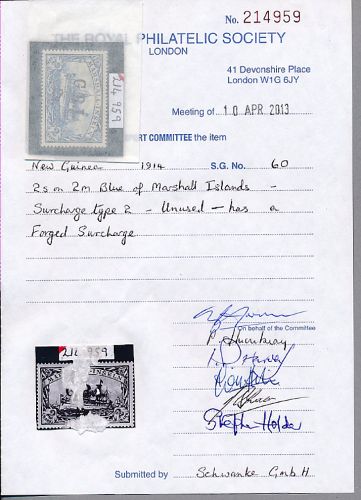 No. 214959
THE ROYAL PHILATELIC SOCIETY
LONDON
41 Devonshire Place
London W1G 6JY
214 959
G.R.I.
Meeting of 10 APR 2013
COMMITTEE the item
New Guinea 1914 S.G. No. 60
2s on 2m Blue of Marshall Islands -
Surcharge type 2 - Unused - has a
Forged Surcharge
214 959
On behalf of the Committee
Stephen Holder
Submitted by Schwanke GmbH